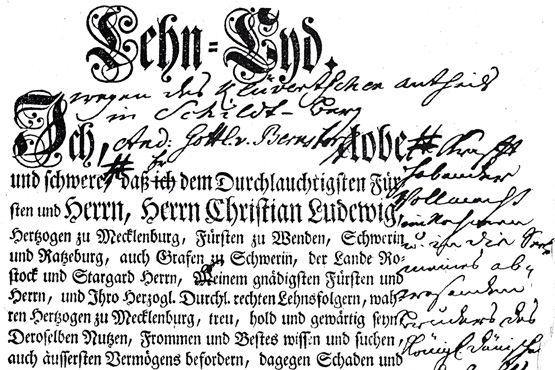 Lehn-Eyd.
wegen des Klüverschen antheils
in Schildt-Berg
Ich, And: Gottl. v. Bernstorf gelobe
und schwere, daß ich dem Durchlauchtigsten Für
sten und Herrn, Herrn Christian Ludewig,
Hertzogen zu Mecklenburg, Fürsten zu Wenden, Schwerin
und Ratzeburg, auch Grafen zu Schwerin, der Lande Ro-
stock und Stargard Herrn, Meinem gnädigsten Fürsten und
Herrn, und Ihro Herzogl. Durchl. rechten Lehnsfolgern, wah
ren Hertzogen zu Mecklenburg, treu, hold und gewärtig seyn,
Deroselben Nutzen, Frommen und Bestes wissen und suchen,
auch äussersten Vermögens befordern, dagegen Schaden und
Krafft
habender
Vollmacht
in die Seele
meines ab-
wesenden
Bruders des
Königl. Dänischen